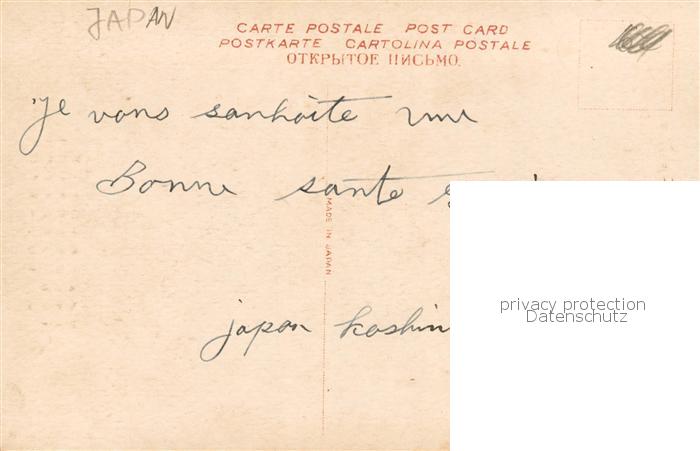 JAPAN
CARTE POSTALE POST CARD
POSTKARTE CARTOLINA POSTALE
ОТКРЫТОЕ ПИСЬМО.
Je vous sanhoite une
Bonne sante
MADE IN JAPAN
japan Koshin
privacy protection
Datenschutz